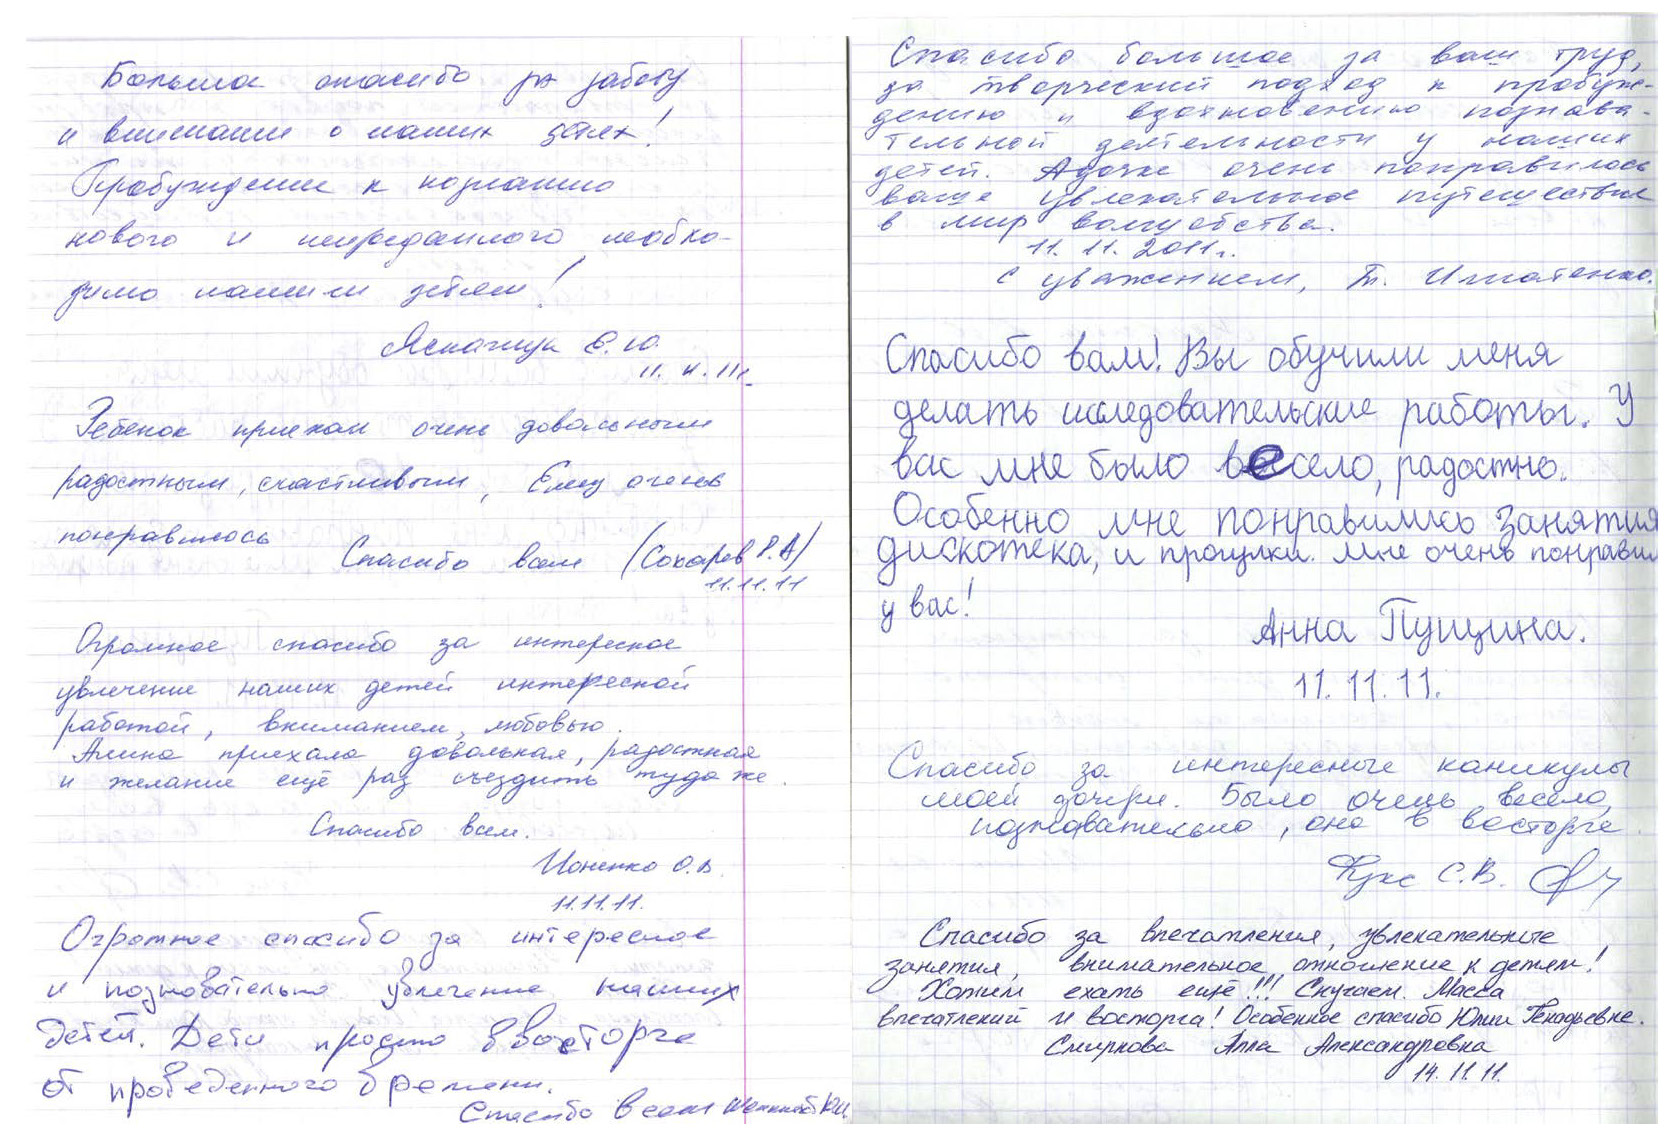 Большое спасибо за заботу
и внимание о наших детях!
Пробуждение к познанию
нового и неизведанного необхо-
димо нашим детям!
Е.Ю.
11.11.11г.
Ребенок приехал очень довольным
радостным, счастливым, Ему очень
понравилось
Спасибо всем (Сохарев Р.А)
11.11.11
Огромное спасибо за интересное
увлечение наших детей интересной
работой, вниманием, любовью.
Алина приехала довольная, радостная
и желание ещё раз съездить туда же.
Спасибо всем.
Ионенко О.В.
11.11.11.
Огромное спасибо за интересное
и познавательное увлечение наших
детей. Дети просто в восторге
от проведенного времени.
Спасибо всем
Спасибо большое за ваш труд,
за творческий подход к пробуж-
дению и вдохновению познава-
тельной деятельности у наших
детей. Адочке очень понравилось
ваше увлекательное путешествие
в мир волшебства.
11.11.2011г.
С уважением, Т. Игнатенко.
Спасибо вам! Вы обучили меня
делать исследовательские работы. У
вас мне было весело, радостно.
Особенно мне понравились занятия
дискотека, и прогулки. Мне очень понравил
у вас!
Анна Пущина.
11.11.11.
Спасибо за интересные каникулы
моей дочери. Было очень весело,
познавательно, она в восторге.
Кукс С.В.
Спасибо за впечатления, увлекательные
занятия, внимательное отношение к детям!
Хотим ехать ещё!!! Скучаем. Масса
впечатлений и восторга! Особенное спасибо Юлии Генадьевне.
Смирнова Алла Александровна
14.11.11.